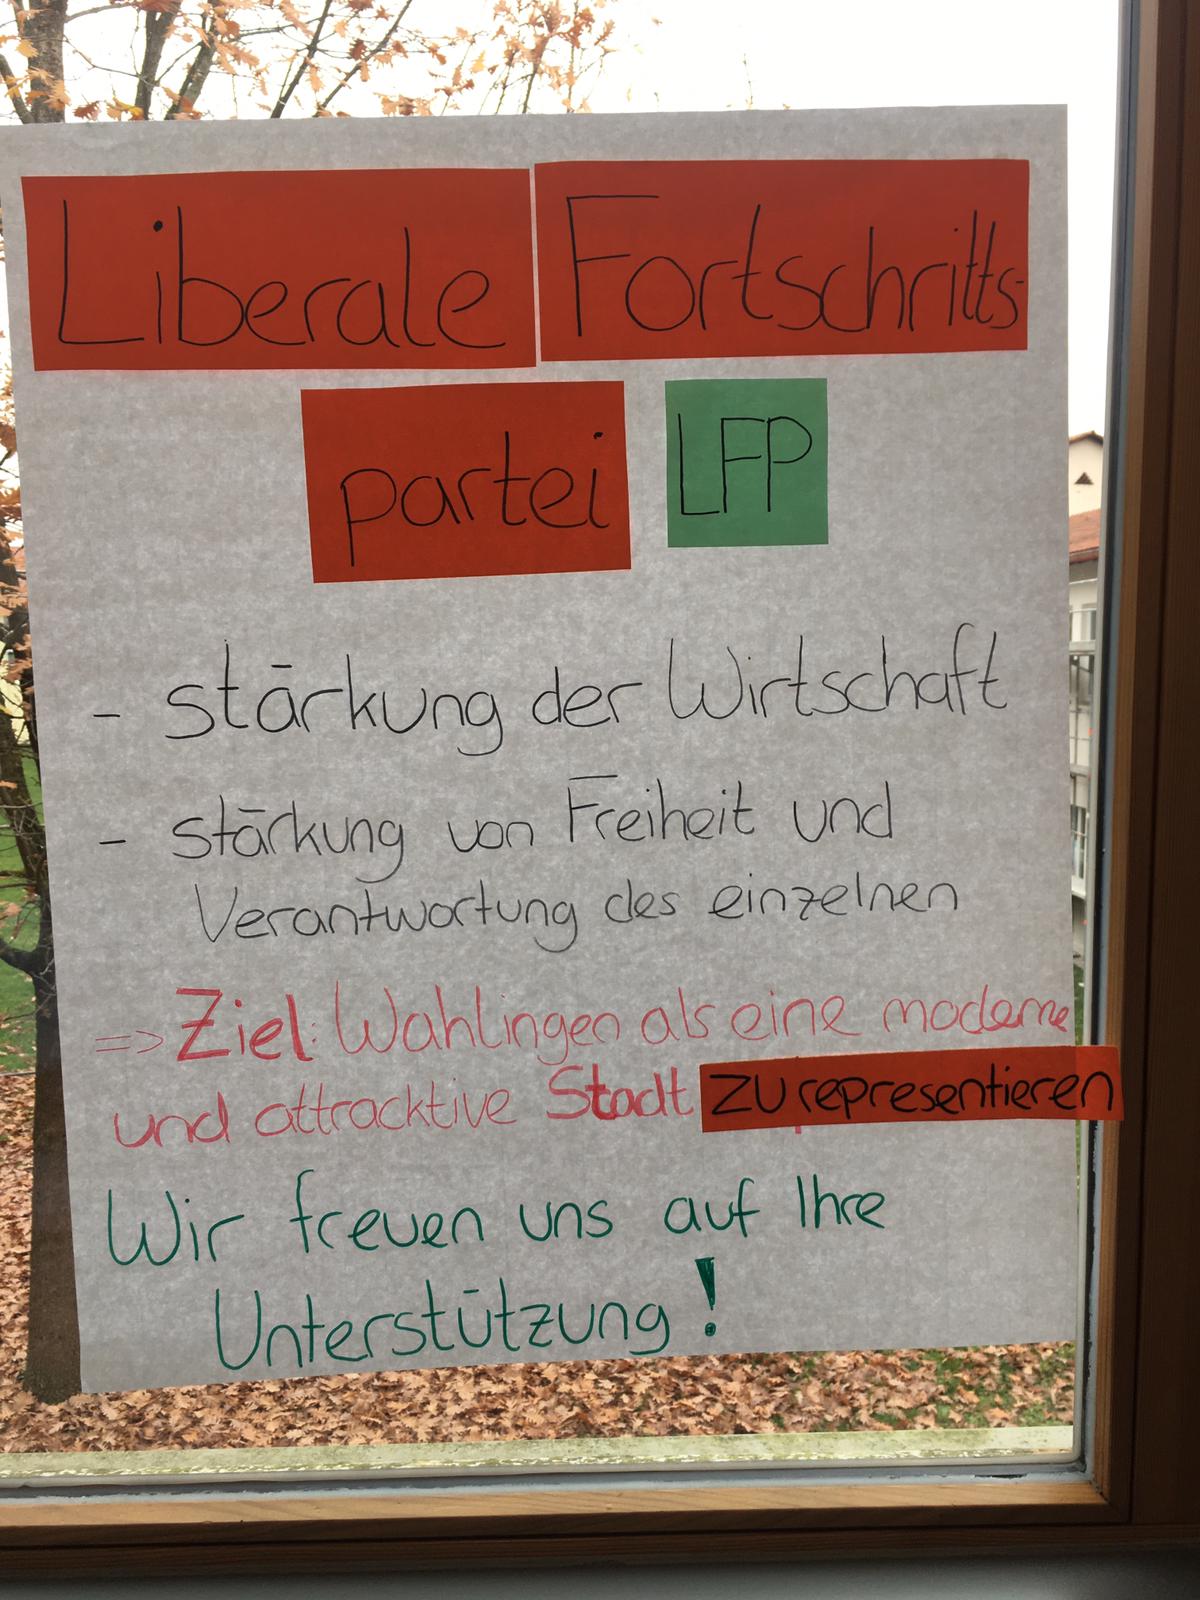 Liberale Fortschritts-
partei LFP
- stärkung der Wirtschaft
- stärkung von Freiheit und
Verantwortung des einzelnen
=> Ziel: Wahlingen als eine moderne
und attracktive Stadt zu representieren
Wir freuen uns auf Ihre
Unterstützung!